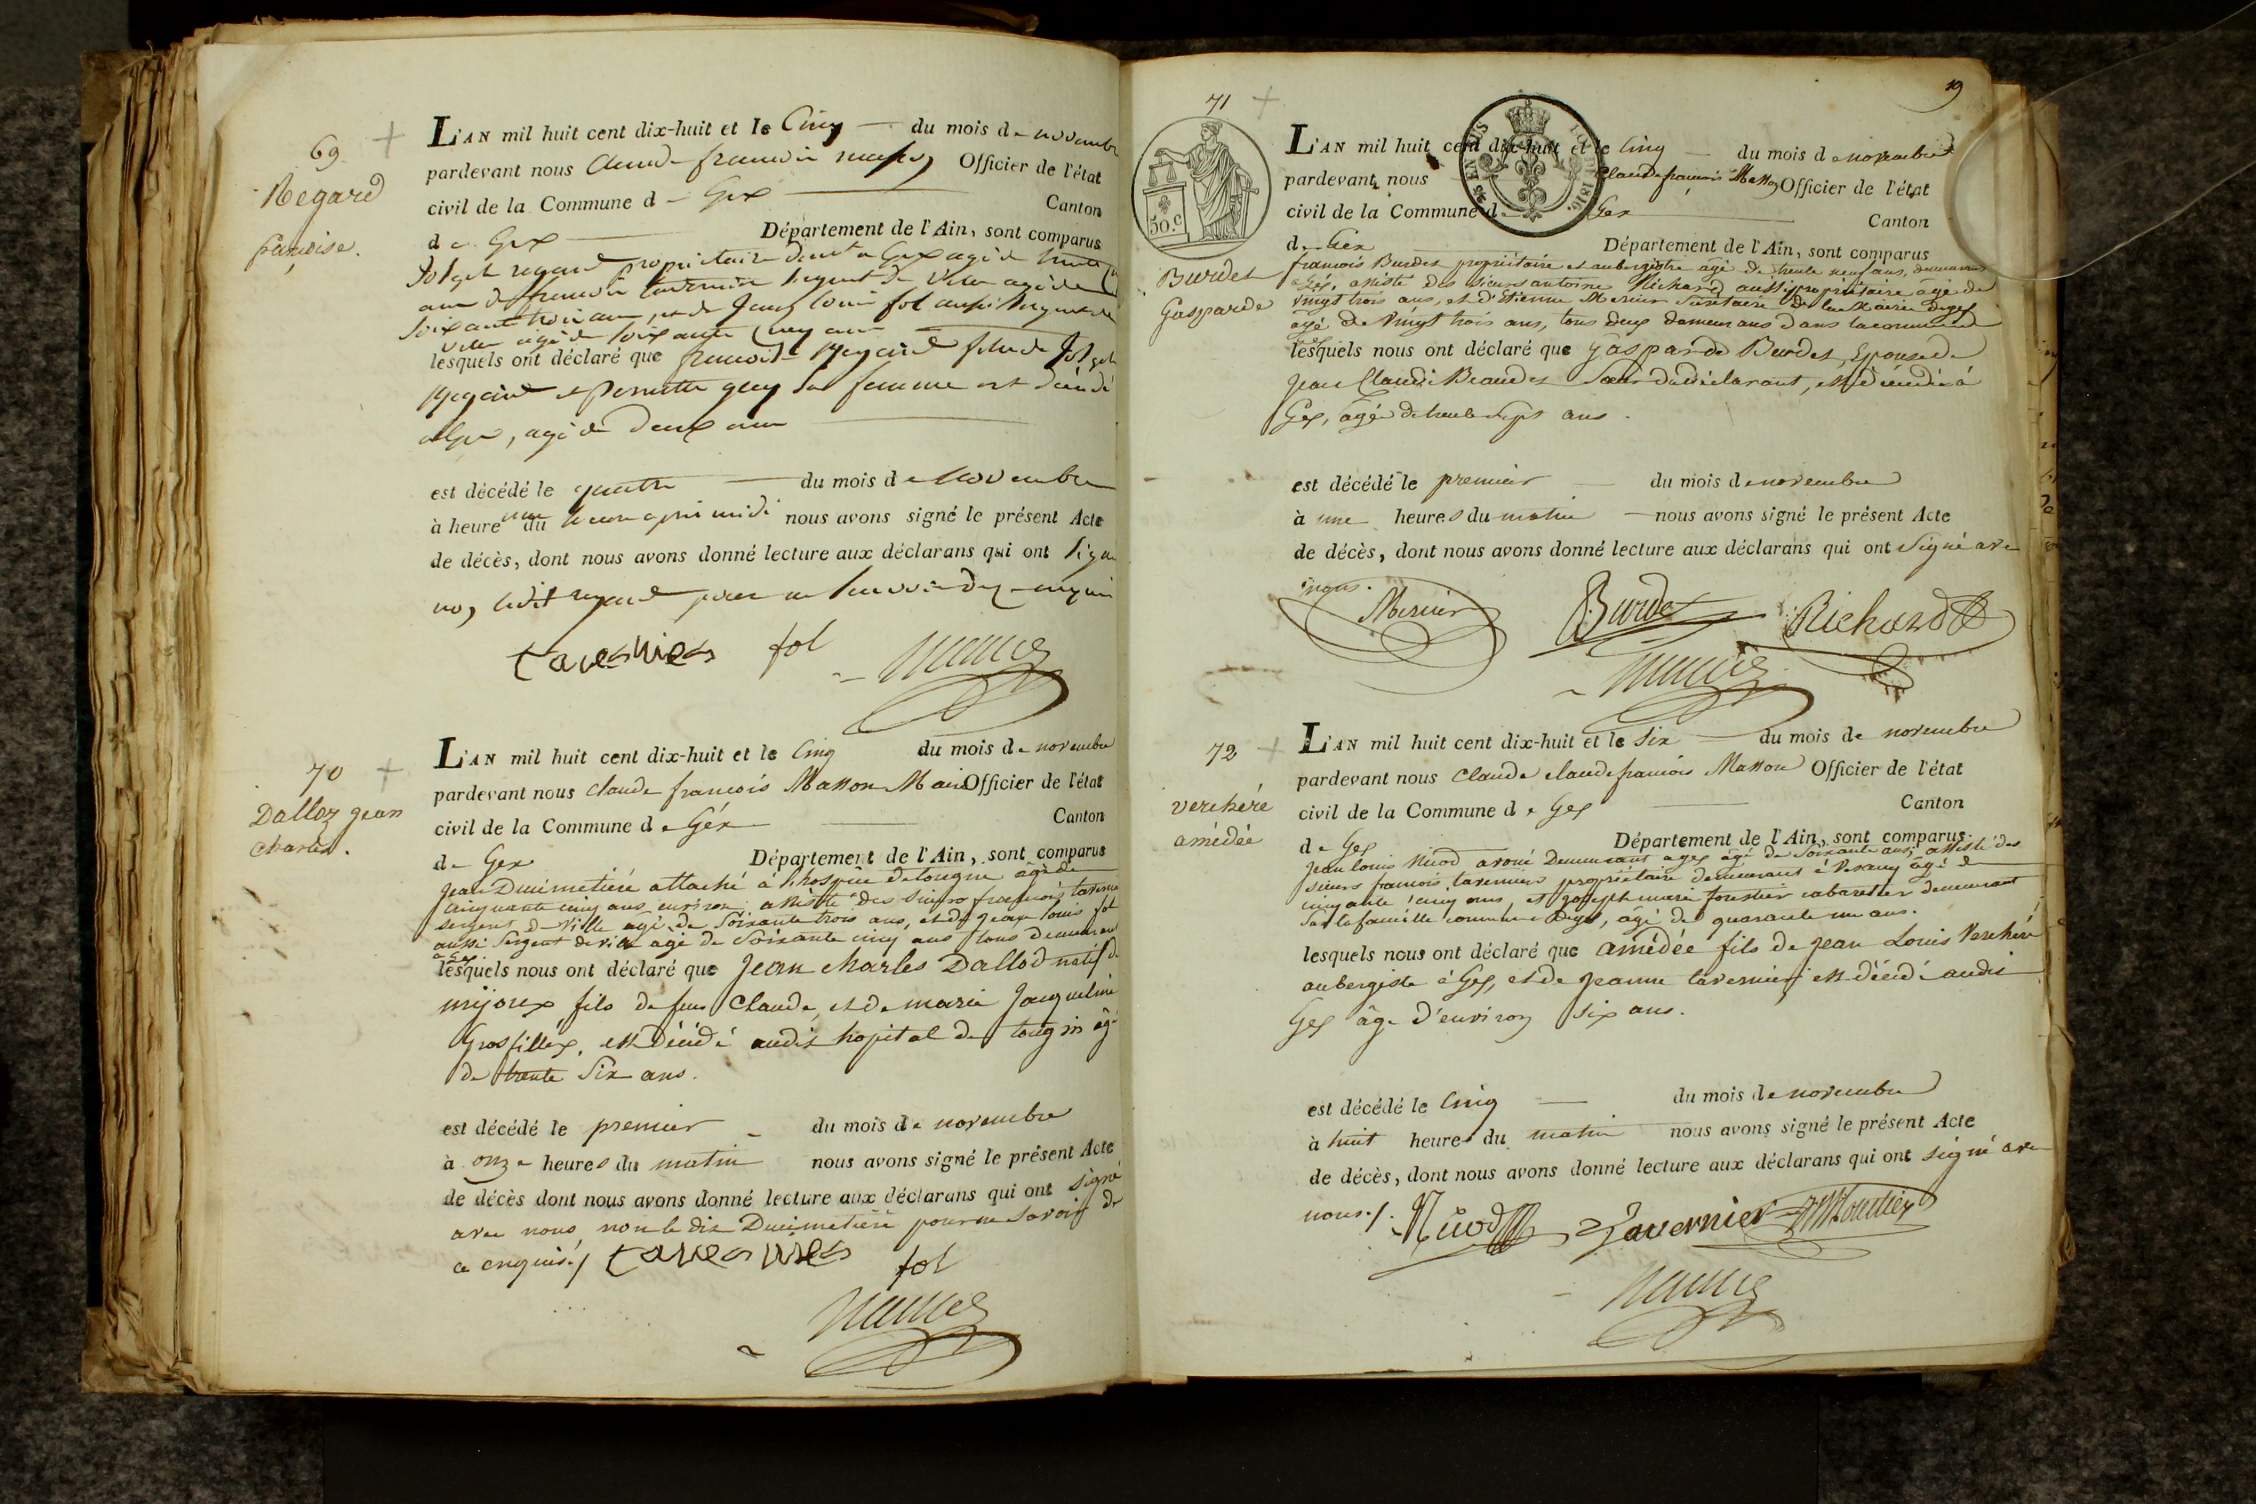 69
Regard
françoise.
L'AN mil huit cent dix-huit et le Cinq du mois de novembre
pardevant nous Claude françois Masson Officier de l'état
civil de la Commune d Gex Canton
de Gex Département de l'Ain, sont comparus
regard propriétaire demt a Gex agé de trente
ans de françois tavernier sergent de ville agé de
soixante trois ans, et de Jean louis fol aussi sergent de
ville agé de soixante cinq ans
lesquels ont déclaré que françoise Regard fille de
Regard et Pernette sa femme est décédé
a Gex, agé de deux ans
est décédé le quatre du mois de novembre
à heure une du heure après midi nous avons signé le présent Acte
de décès, dont nous avons donné lecture aux déclarans qui ont signé
non ledit regard pour ne savoir de ce enquis
tavernier fol Masson
70
Dalloz jean
charles.
L'AN mil huit cent dix-huit et le Cinq du mois de novembre
pardevant nous claude françois Masson Maire Officier de l'état
civil de la Commune de Géx Canton
de Gex Département de l'Ain, sont comparus
Jean Ducimetière attaché à l'hospice de tougin âgé de
cinquante cinq ans environ, assisté des sieurs françois tavernier
sergent de ville âgé de soixante trois ans, et de jean louis fol
aussi sergent de ville agé de soixante cinq ans tous demeurant
a Gex
lesquels nous ont déclaré que Jean charles Dallod natif de
mijoux fils de feu Claude, et de marie Jacqueline
Grosfillex, est décédé audit hopital de tougin âgé
de trente six ans.
est décédé le premier du mois de novembre
à onze heures du matin nous avons signé le présent Acte
de décès dont nous avons donné lecture aux déclarans qui ont signé
avec nous, non le dit Ducimetière pour ne savoir de
ce enquis./ tavernier fol
Masson
19
71
50.c
Burdet
Gasparde
L'AN mil huit cent dix-huit et le Cinq du mois de novembre
pardevant nous Claude françois Masson Officier de l'état
civil de la Commune de Gex Canton
de Gex Département de l'Ain, sont comparus
françois Burdet propriétaire et aubergiste âgé de trente neuf ans, demeurant
a Gex, assisté des sieurs antoine Richard aussi propriétaire âgé de
vingt trois ans, et d'Etienne Mercier Secrétaire de la Mairie de gex
âgé de vingt trois ans, tous deux demeurans dans la commune
lesquels nous ont déclaré que gasparde Burdet, Epouse de
Jean Claude Beaudet Sœur du déclarant, est décédée à
Gex, âgée de trente sept ans.
est décédé le premier du mois de novembre
à une heures du matin nous avons signé le présent Acte
de décès, dont nous avons donné lecture aux déclarans qui ont signé avec
nous.
Mercier Burdet Richard
Masson
72
verchére
amédée
L'AN mil huit cent dix-huit et le six du mois de novembre
pardevant nous Claude claude françois Masson Officier de l'état
civil de la Commune de Gex Canton
de Gex Département de l'Ain, sont comparus
Jean louis Nicod avoué Demeurant a gex âgé de soixante ans, assisté des
sieurs françois tavernier propriétaire demeurant à Vesancy âgé de
cinquante cinq ans, et joseph marie fournier cabaretier demeurant
sur le faucille commune de gex, âgé de quarante un ans.
lesquels nous ont déclaré que amédée fils de Jean Louis Verchére
aubergiste à Gex, et de jeanne tavernier est décédé audit
Gex âge d'environ six ans.
est décédé le Cinq du mois de novembre
à huit heures du matin nous avons signé le présent Acte
de décès, dont nous avons donné lecture aux déclarans qui ont signé avec
nous./. Nicod Tavernier
Masson